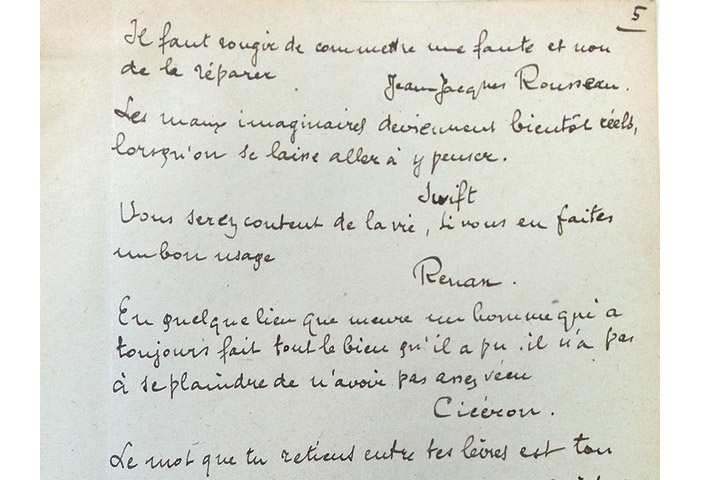 5
Il faut rougir de commettre une faute et non
de la réparer
Jean-Jacques Rousseau.
Les maux imaginaires deviennent bientôt réels,
lorsqu'on se laisse aller à y penser.
Swift
Vous serez content de la vie, si vous en faites
un bon usage
Renan.
En quelque lieu que meure un homme qui a
toujours fait tout le bien qu'il a pu. il n'a pas
à se plaindre de n'avoir pas assez vécu
Cicéron.
Le mot que tu retiens entre tes lèvres est ton